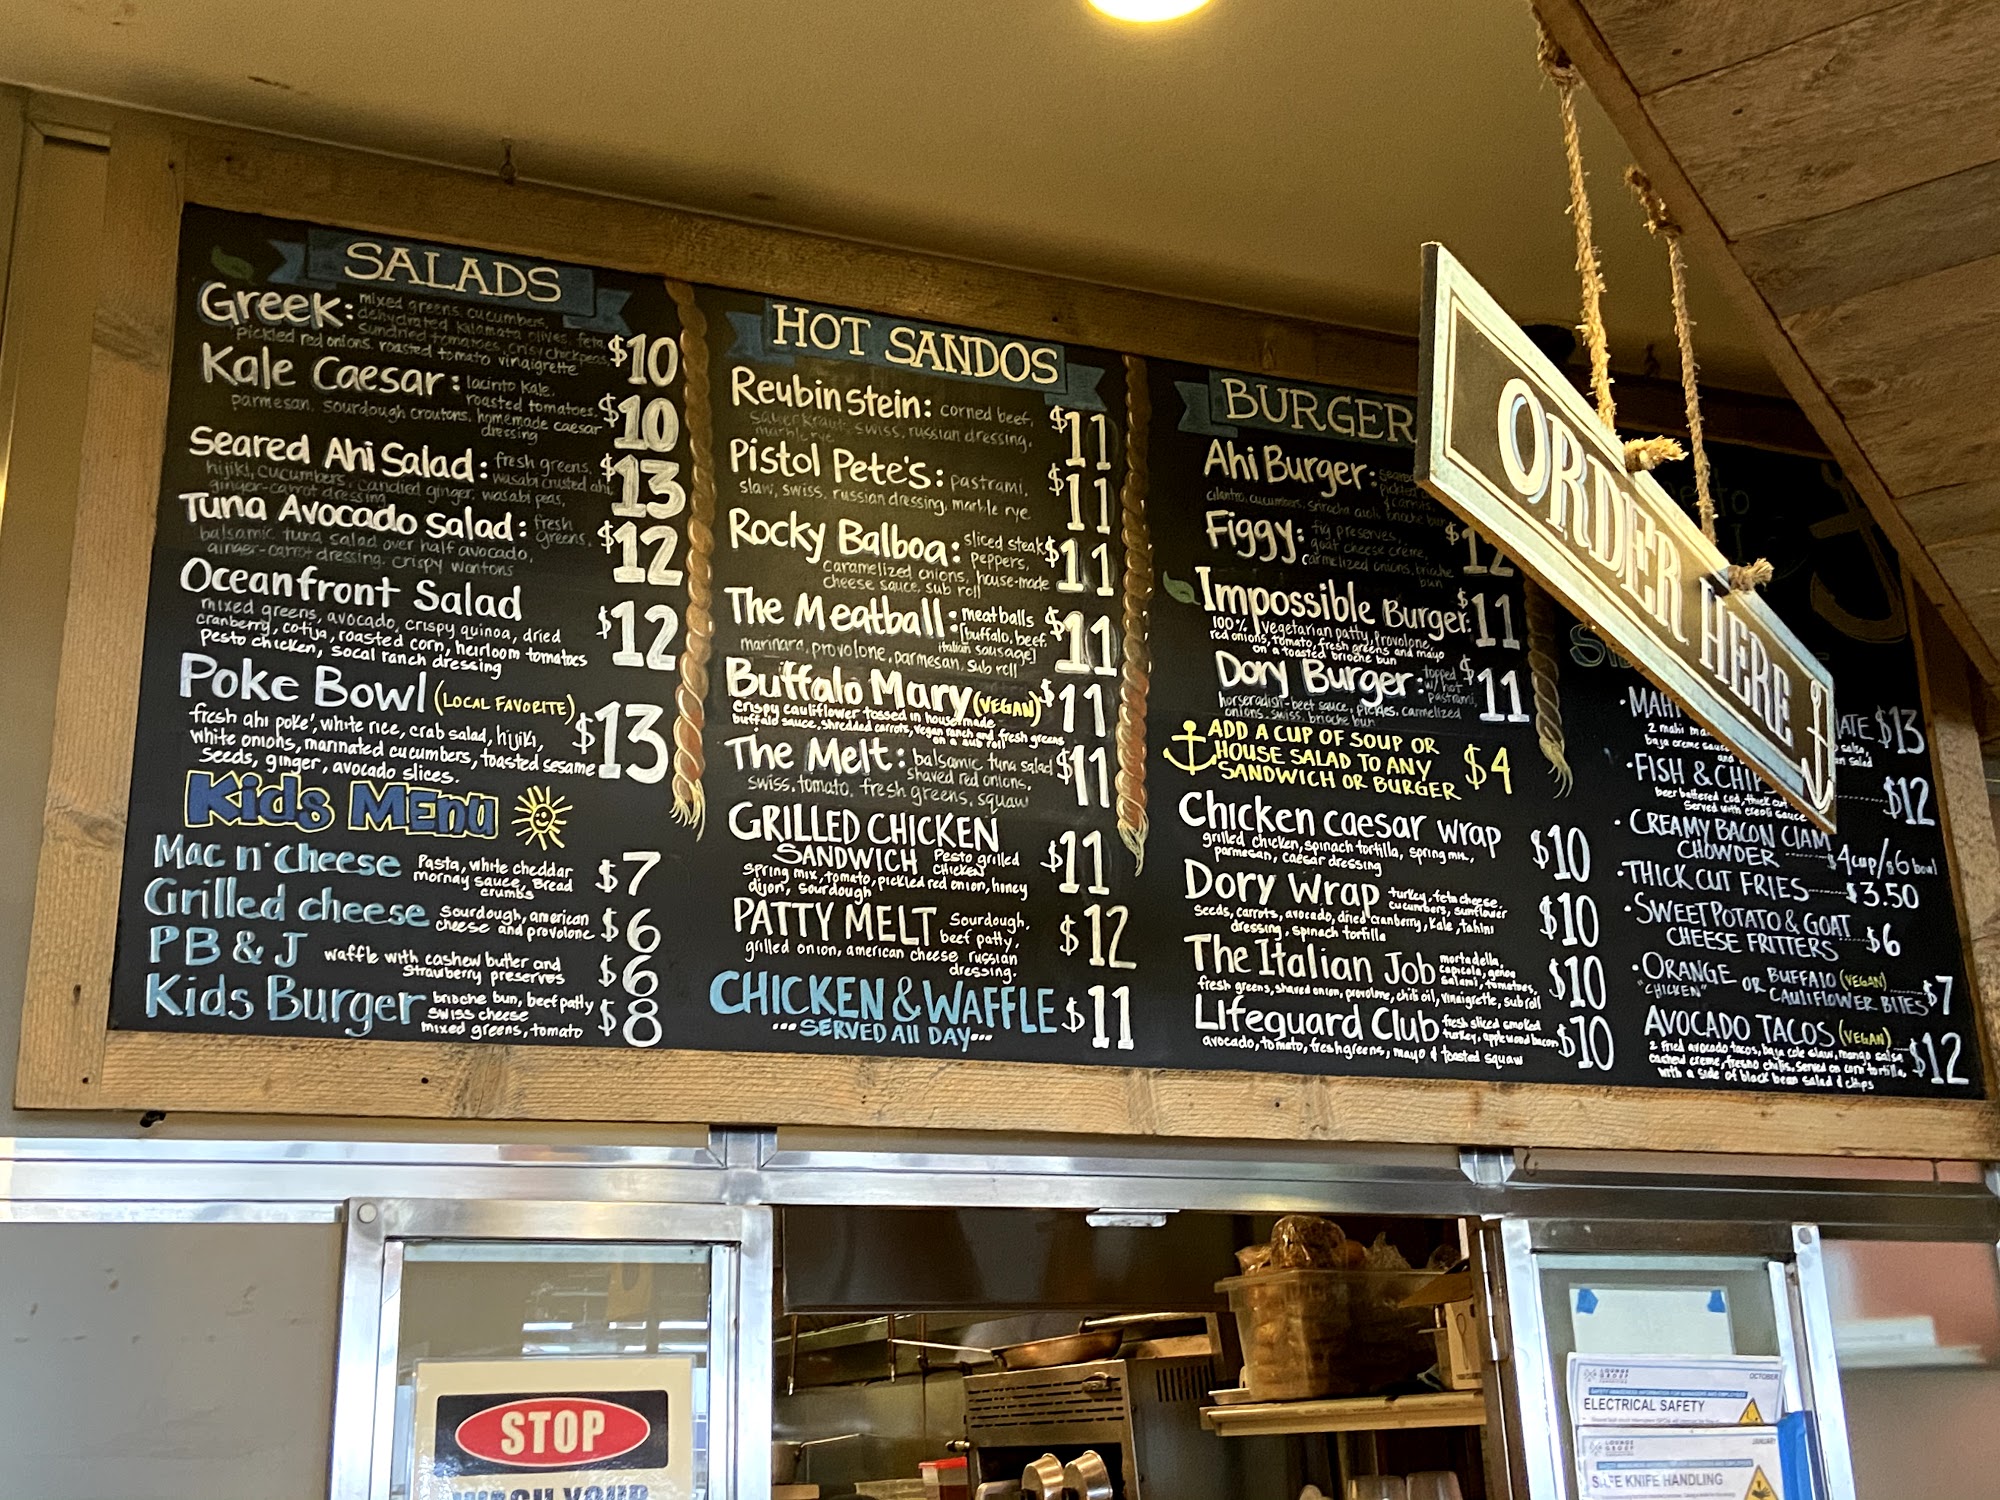 SALADS
Greek: mixed greens, cucumbers,
dehydrated kalamata olives, feta
sundried tomatoes, crispy chickpeas,
pickled red onions, roasted tomato vinaigrette $10
Kale Caesar: lacinto kale,
roasted tomatoes,
parmesan, sourdough croutons, homemade caesar
dressing $10
Seared Ahi Salad: fresh greens,
wasabi crusted ahi,
hijiki, cucumbers, candied ginger, wasabi peas,
ginger-carrot dressing $13
Tuna Avocado Salad: fresh
greens,
balsamic tuna salad over half avocado,
ginger-carrot dressing, crispy wontons $12
Oceanfront Salad
mixed greens, avocado, crispy quinoa, dried
cranberry, cotija, roasted corn, heirloom tomatoes
pesto chicken, socal ranch dressing $12
Poke Bowl (LOCAL FAVORITE)
fresh ahi poke, white rice, crab salad, hijiki,
white onions, marinated cucumbers, toasted sesame
seeds, ginger, avocado slices. $13
Kids MEnu
Mac n' cheese Pasta, white cheddar
mornay sauce, Bread
crumbs $7
Grilled cheese sourdough, american
cheese and provolone $6
PB & J waffle with cashew butter and
strawberry preserves $6
Kids Burger brioche bun, beef patty
swiss cheese
mixed greens, tomato $8
HOT SANDOS
Reubinstein: corned beef,
sauerkraut, swiss, russian dressing,
marble rye $11
Pistol Pete's: pastrami,
slaw, swiss, russian dressing, marble rye $11
Rocky Balboa: sliced steak
peppers,
caramelized onions, house-made
cheese sauce, sub roll $11
The Meatball: meatballs
[buffalo, beef,
italian sausage]
marinara, provolone, parmesan, sub roll $11
Buffalo Mary (VEGAN) $11
crispy cauliflower tossed in housemade
buffalo sauce, shredded carrots, vegan ranch and fresh greens
on a sub roll
The Melt: balsamic tuna salad
shaved red onions,
swiss, tomato, fresh greens, squaw $11
GRILLED CHICKEN
SANDWICH Pesto grilled
CHICKEN
spring mix, tomato, pickled red onion, honey
dijon, sourdough $11
PATTY MELT sourdough,
beef patty,
grilled onion, american cheese, russian
dressing. $12
CHICKEN & WAFFLE $11
...SERVED All DAY...
BURGER
Ahi Burger:
cilantro, cucumbers, sriracha aioli, brioche bun
Figgy: fig preserves,
goat cheese creme,
carmelized onions, brioche
bun $12
Impossible Burger: $11
100% vegetarian patty, provolone,
red onions, tomato, fresh greens and mayo
on a toasted brioche bun
Dory Burger: topped
w/ hot
pastrami,
horseradish-beet sauce, pickles, carmelized
onions, swiss, brioche bun $11
ADD A CUP OF SOUP OR
HOUSE SALAD TO ANY
SANDWICH OR BURGER $4
Chicken caesar wrap
grilled chicken, spinach tortilla, spring mix,
parmesan, caesar dressing $10
Dory Wrap turkey, feta cheese,
cucumbers, sunflower
seeds, carrots, avocado, dried cranberry, kale, tahini
dressing, spinach tortilla $10
The Italian Job mortadella,
capicola, genoa
salami, tomatoes,
fresh greens, shaved onion, provolone, chili oil, vinaigrette, sub roll $10
Lifeguard Club fresh sliced smoked
turkey, applewood bacon
avocado, tomato, fresh greens, mayo & toasted squaw $10
$13
2 mahi
baja creme sauce
FISH & CHIP $12
beer battered cod, thick cut
Served with creoli sauce
•CREAMY BACON CLAM
CHOWDER $4 cup/$6 bowl
•THICK CUT FRIES $3.50
•SWEET POTATO & GOAT
CHEESE FRITTERS $6
•ORANGE OR BUFFALO (VEGAN)
"CHICKEN" CAULIFLOWER BITES $7
AVOCADO TACOS (VEGAN)
2 fried avocado tacos, baja cole slaw, mango salsa
cashed creme, fresno chilis, Served on corn tortilla
with a side of black bean salad & chips $12
ORDER HERE
STOP
WASH YOUR
LOUNGE
GROUP
OCTOBER
SAFETY AWARENESS INFORMATION FOR MANAGERS AND EMPLOYEES
ELECTRICAL SAFETY
LOUNGE
GROUP
JANUARY
SAFE KNIFE HANDLING